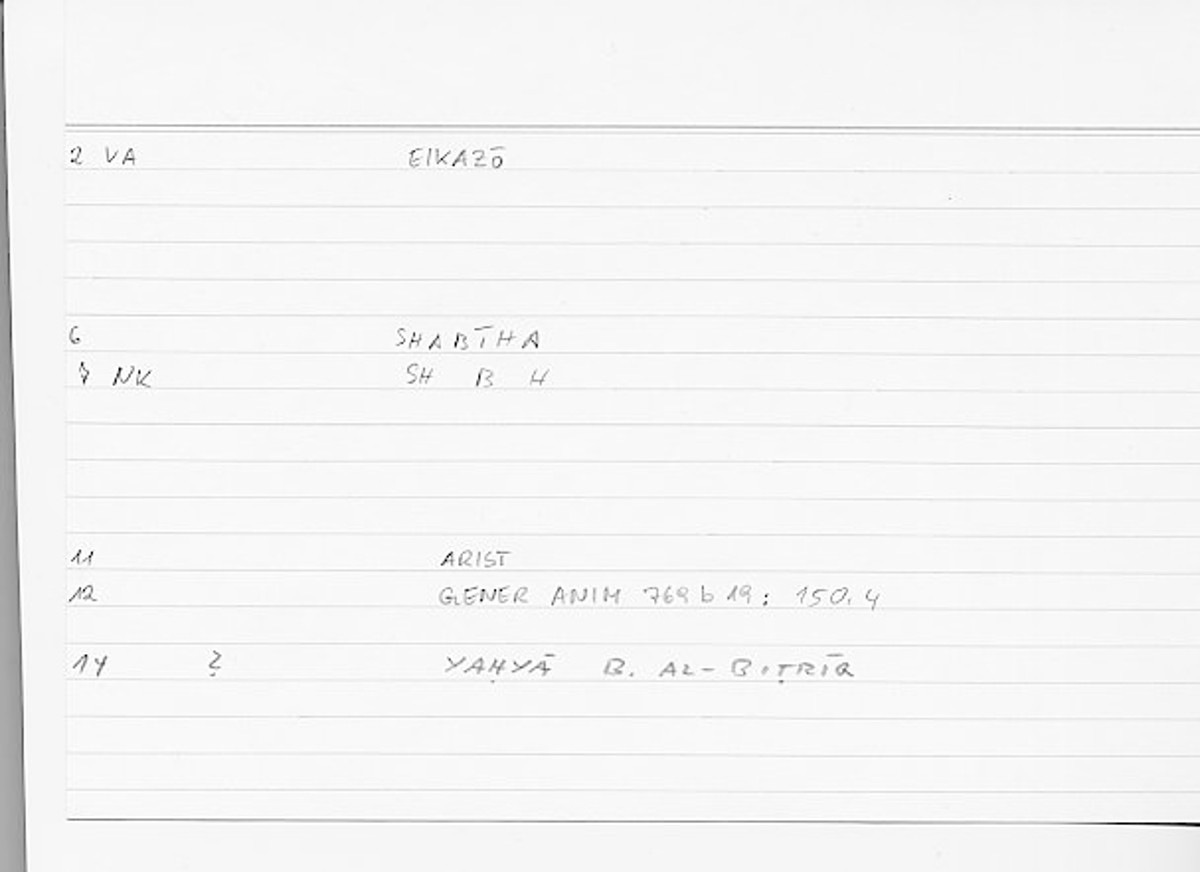 2 VA EIKAZŌ
6 SHABĪHA
7 NK SH B H
11 ARIST
12 GENER ANIM 769 b 19: 150.4
14 ? YAḤYĀ B. AL-BIṬRĪQ